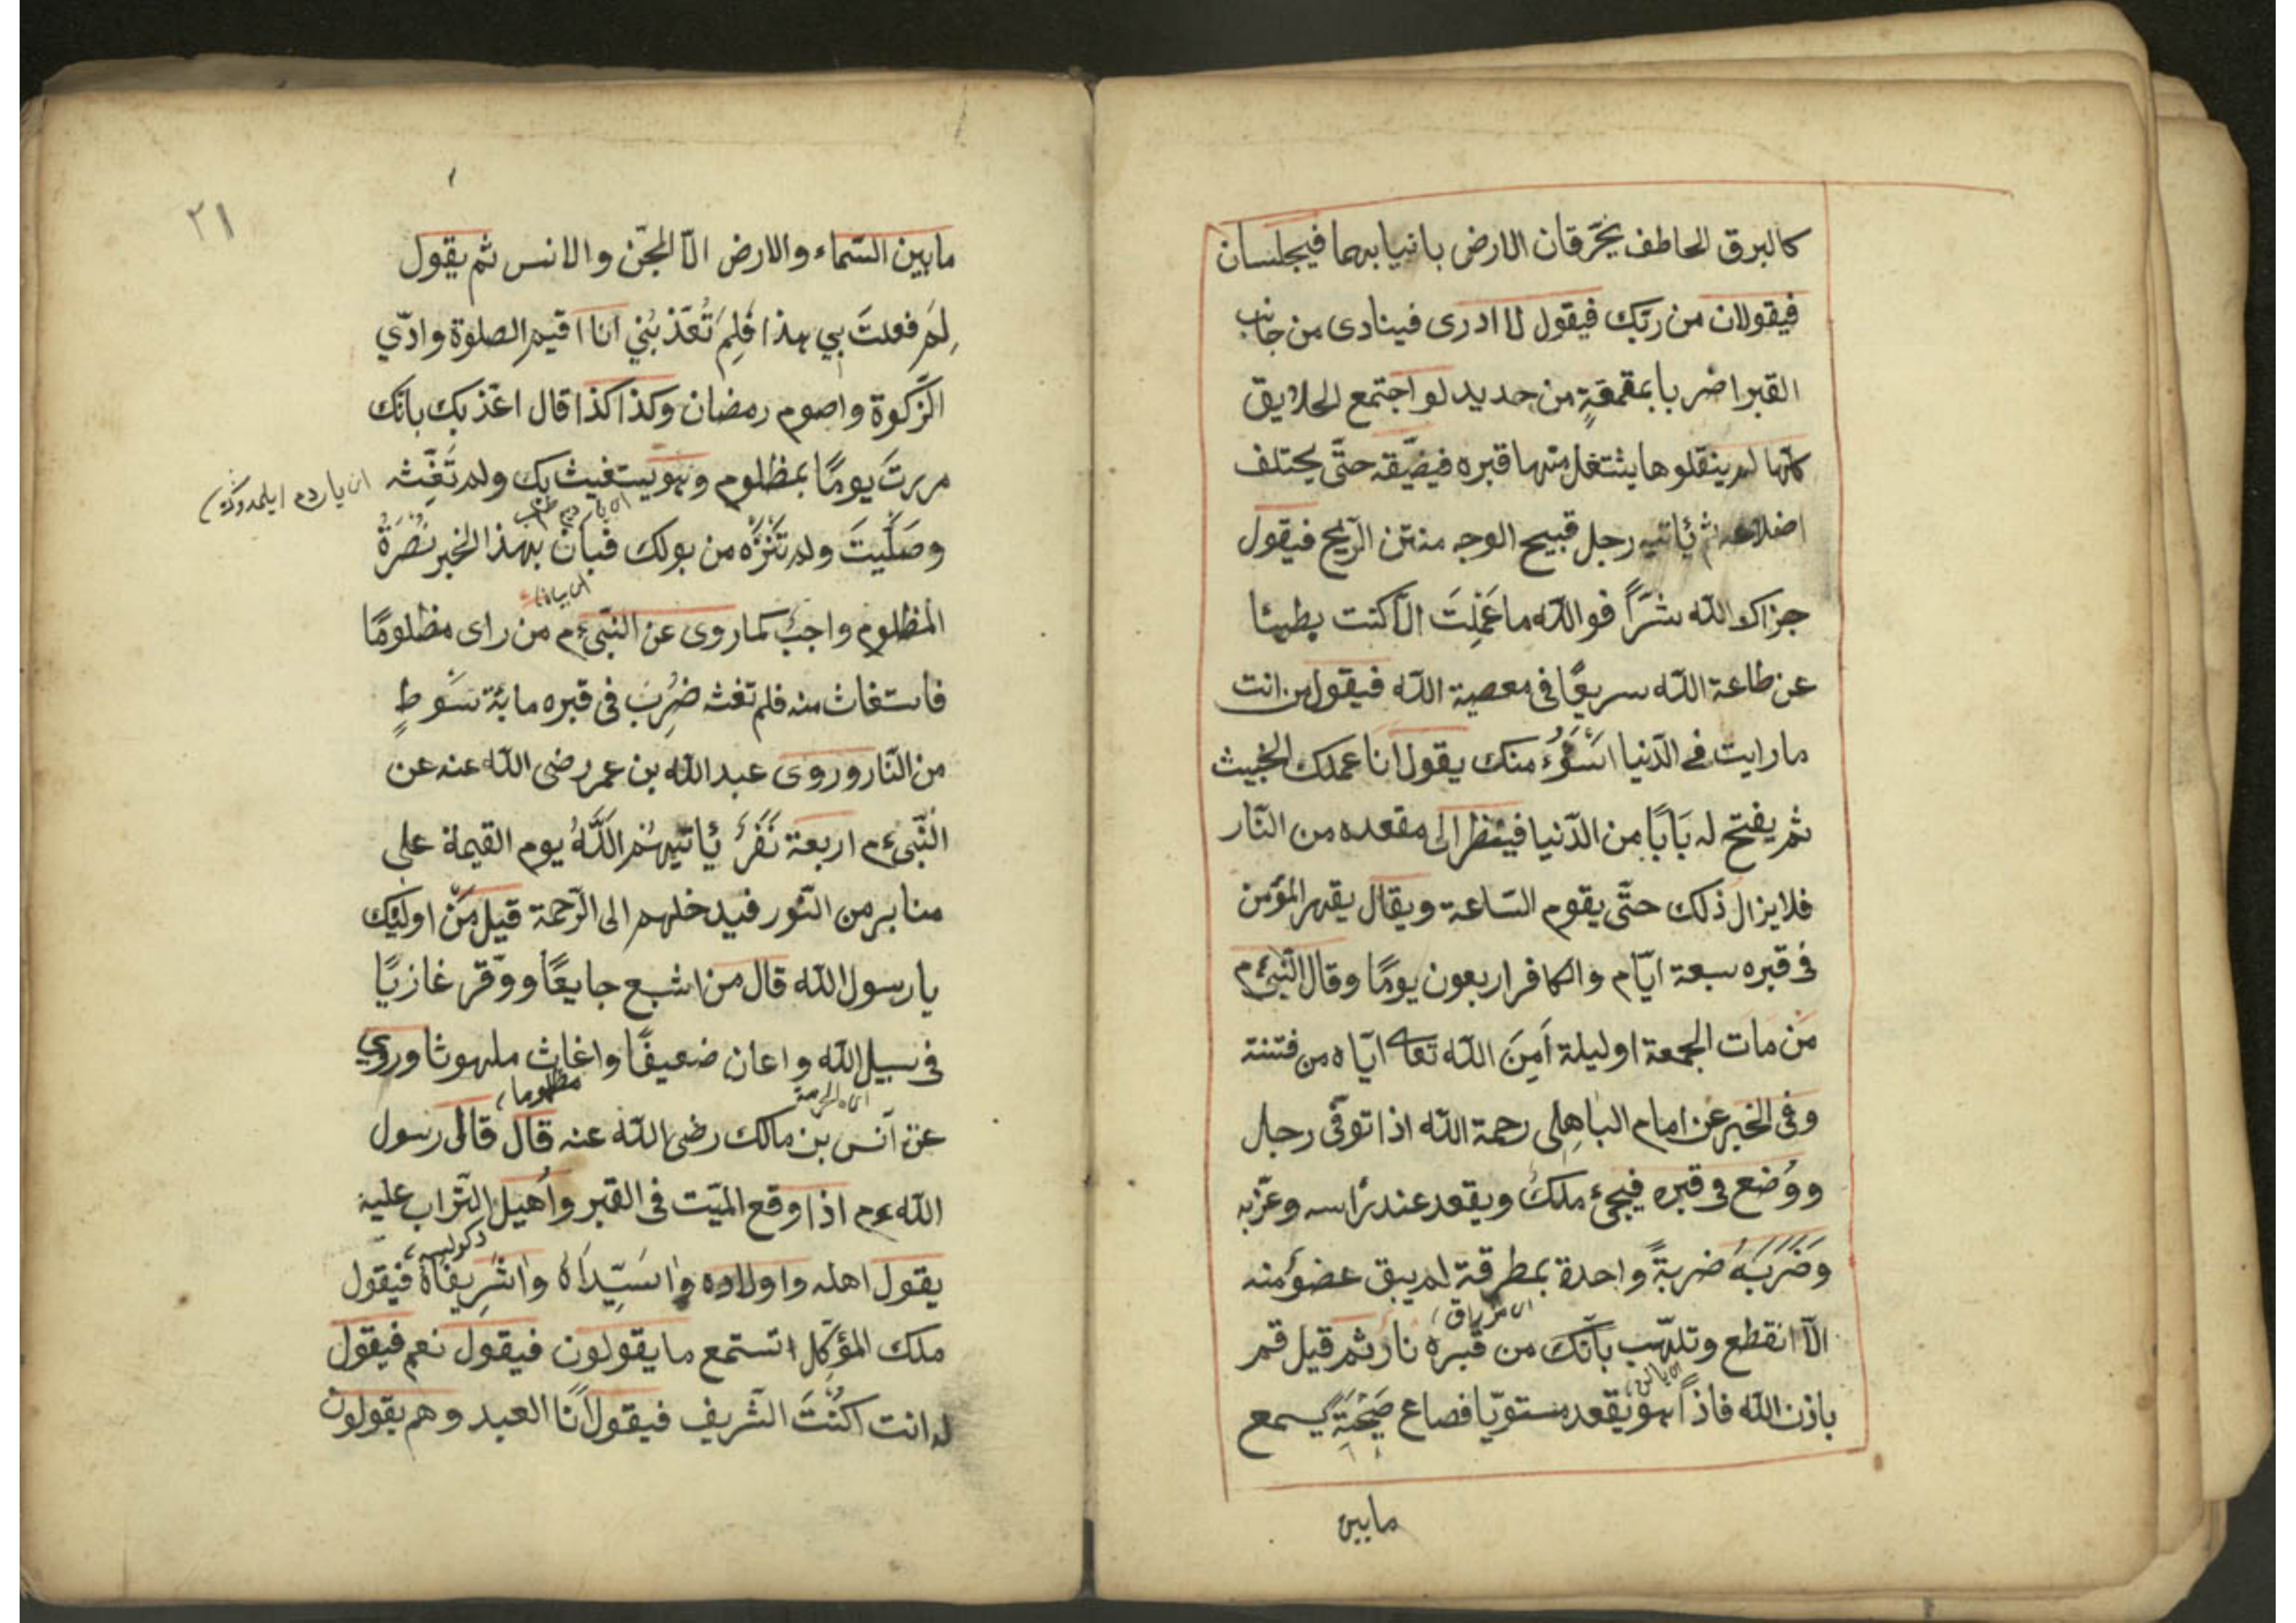 كالبرق الخاطف يخرقان الارض بانيابهما فيجلسان
فيقولان من ربّك فيقول لا ادرى فينادى من جانب
القبر اضربا بمقمقةٍ من حديد لو اجتمع الخلايق
كلّها لم ينقلوها يشتغل منها قبره فيضيّقه حتّى يختلف
اضلاعه ثم ئاتيه رجل قبيح الوجه منتن الرّيح فيقول
جزاك الله شرًّا فوالله ما عَمِلتَ الّا كنت بطيئا
عن طاعة الله سريعًا فى معصية الله فيقول من انت
ما رايت فى الدّنيا اسَوُءَ منك يقول انا عملك الخبيث
ثم يفتح له بَابًا من الدّنيا فينظر الى مقعده من النّار
فلا يزال ذلك حتّى يقوم السّاعة ويقال يقهر المؤمن
فى قبره سبعة ايّام والكافر اربعون يومًا وقال النّبىّ ءم
مَن مات الجمعة او ليلة اَمِنَ الله تعالى ايّاه من فتنة
وفى الخبر عن امام الباهِلى رحمة الله اذا توفّى رجل
ووُضع فى قبره فيجىء ملكٌ ويقعد عند رٔاسه وعزّبه
وضَرَبَهُ ضربةً واحدة بمطرقة لم يبق عضوٌ منه
الّا انقطع وتلهّب بٔانّك من قبره نار ثم قيل قم
باذن الله فاذًا هو يقعد مستويّا فصاع صَيْحَةً يسمع
مابين
٢١
مابين السّماء والارض الّا الجنّ والانس ثم يقول
لِمَ فعلتَ بى هذا فَلِمَ تُعَذّبُنِي انا اقيم الصلوة وادّي
الزّكوة واصوم رمضان وكذا كذا قال اعذّبك بانّك
مررتَ يومًا بمظلوم وهو يستغيث بك ولم تَغِثه
اى يارد م ايلمدوكڭ
وصَلَّيتَ ولم تَنَزَّه من بولك فبان بهذا الخبر نُصْرَةُ
المظلوم واجبٌ كما روى عن النّبىّ ءم من راى مظلومًا
فاستغاث منه فلم تغثه ضُرِبَ فى قبره مائة سَوطٍ
من النّار وروى عبد الله بن عمر رضى الله عنه عن
النّبىّ ءم اربعة نَفَرٌ ئاتيهُم اللّهُ يوم القيمة على
منابر من النّور فيدخلهم الى الرّحمة قيل مَن اولئك
يا رسول الله قال من اشبع جايعًا ووقّر غازيًا
فى سبيل الله واعان ضعيفًا واغاث ملهوثا وروى
مظلوما
عن انس بن مالك رضى الله عنه قال قال رسول
الله ءم اذا وقع الميّت فى القبر واُهيل التّراب عليه
يقول اهله واولاده وا سَيّداهُ وا شَرِيفاهُ فيقول
ملك المؤكّل اتستمع ما يقولون فيقول نعم فيقول
له انت اكُنْتَ الشّريف فيقول انا العبد وهم يقولون